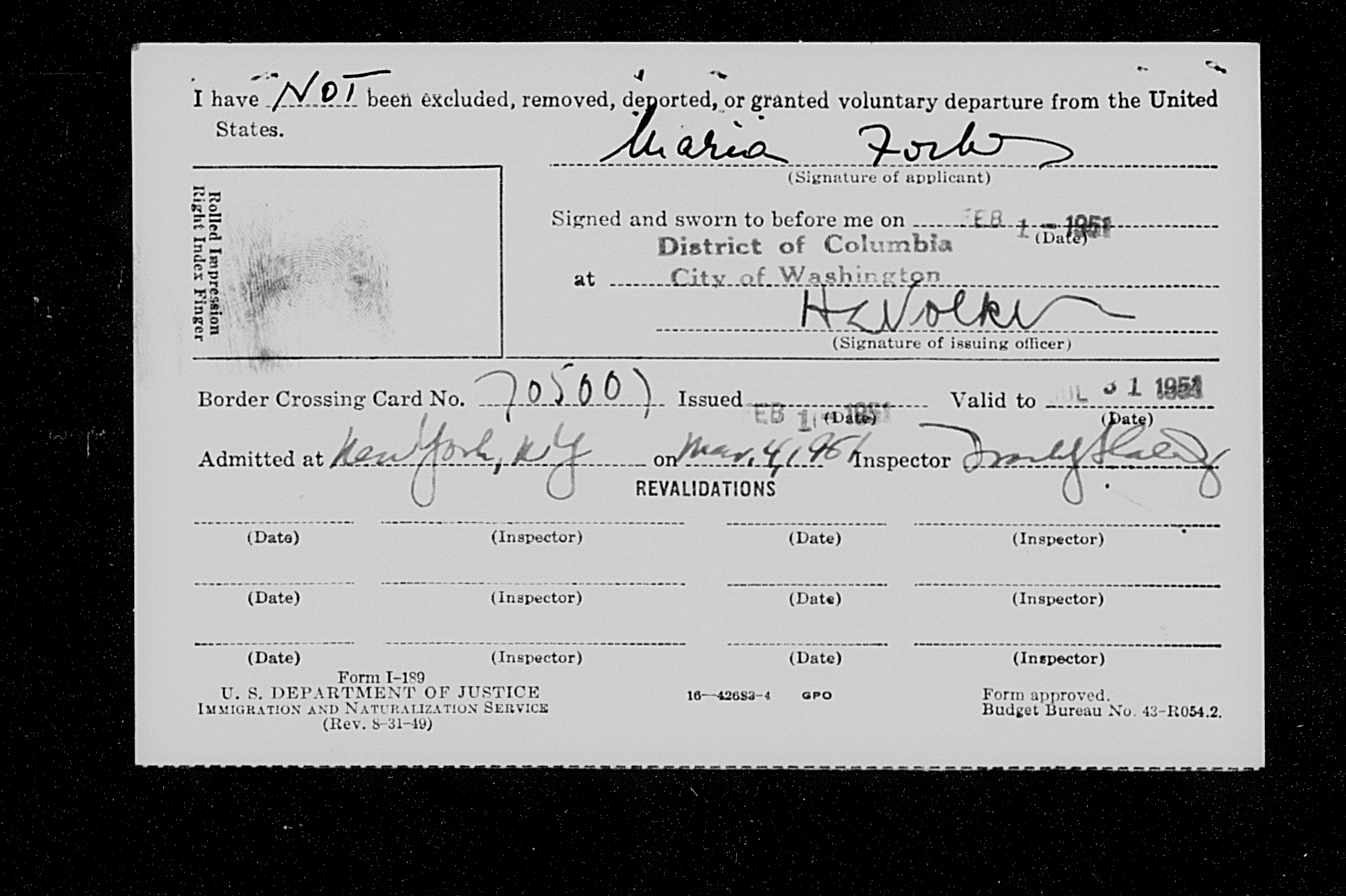 I have NOT been excluded, removed, deported, or granted voluntary departure from the United
States.
Maria
(Signature of applicant)
Rolled Impression
Right Index Finger
Signed and sworn to before me on FEB 1 - 1951
(Date)
District of Columbia
at City of Washington
H L Volker
(Signature of issuing officer)
Border Crossing Card No. 705007 Issued FEB 1 1951 Valid to JUL 31 1951
(Date) (Date)
Admitted at New York, NY on Mar. 4, 1951 Inspector
REVALIDATIONS
(Date) (Inspector) (Date) (Inspector)
(Date) (Inspector) (Date) (Inspector)
(Date) (Inspector) (Date) (Inspector)
Form I-189
U. S. DEPARTMENT OF JUSTICE
IMMIGRATION AND NATURALIZATION SERVICE
(Rev. 8-31-49)
16—42683-4 GPO
Form approved.
Budget Bureau No. 43-R054.2.